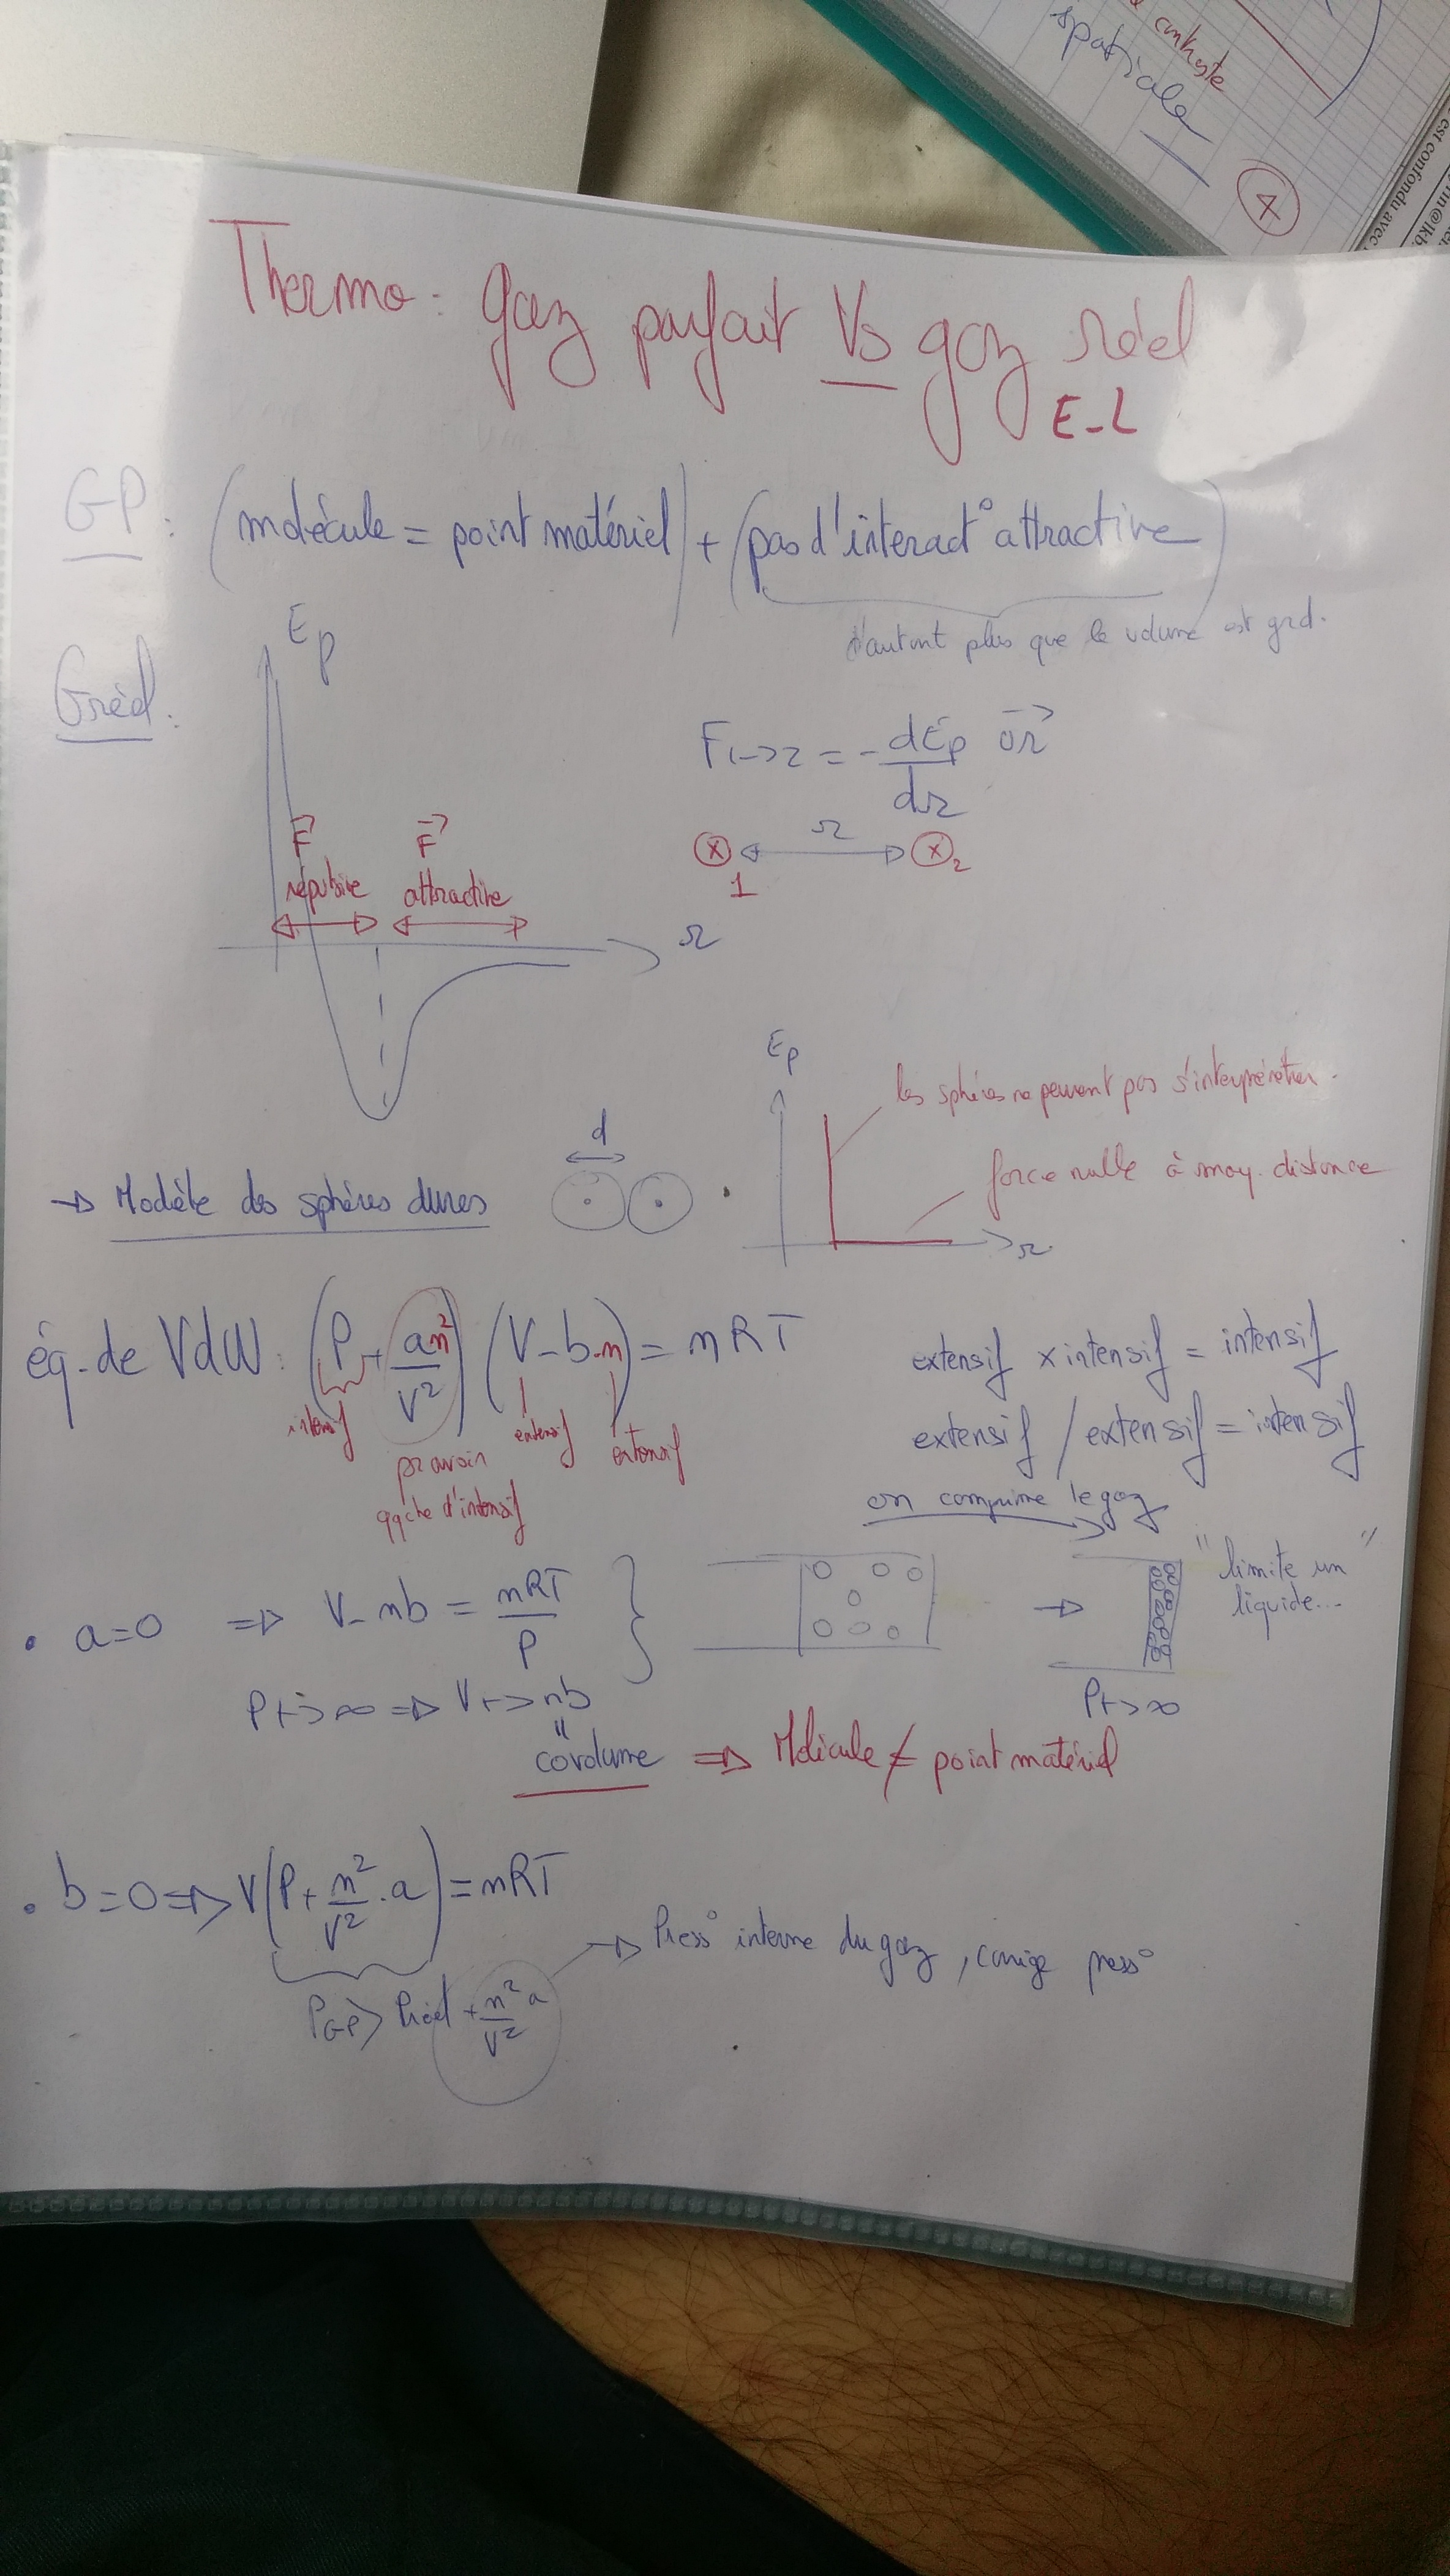 contraste
spatiale
4
est confondu avec
Thermo : gaz parfait Vs gaz réel
E-L
GP : (molécule = point matériel) + (pas d'interact° attractive)
d'autant plus que le volume est grd.
Gréel :
Ep
F1->2 = - dEp/dr ur
F répulsive
F attractive
r
r
1
2
Ep
les sphères ne peuvent pas s'interpénétrer.
force nulle à moy. distance
r
d
-> Modèle des sphères dures
éq. de VdW : (P + an²/V²) (V - b.n) = nRT
intensif
pr avoir
qqche d'intensif
extensif
extensif
extensif x intensif = intensif
extensif / extensif = intensif
on comprime le gaz
"limite un
liquide..."
• a=0 => V - nb = nRT/P
P+->∞ => V+->nb
P+->∞
"
covolume => Molécule ≠ point matériel
• b=0 => V(P + n²/V² . a) = nRT
-> Press° interne du gaz, corrige press°
PGP > Préel + n²a/V²